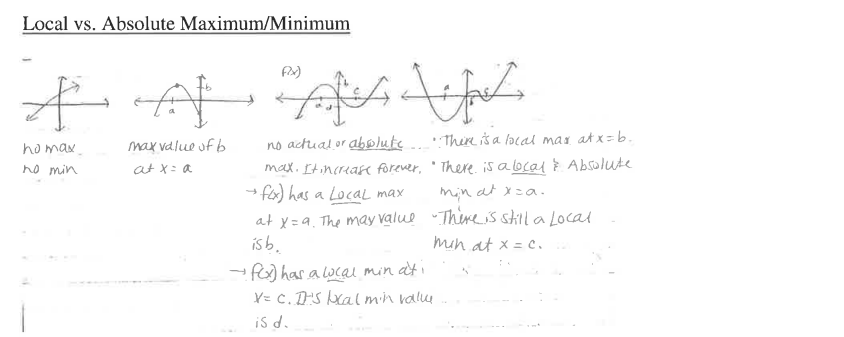 Local vs. Absolute Maximum/Minimum
f(x)
b
a
b
a
d
c
a
b
c
no max
no min
max value of b
at x = a
no actual or absolute
max. It increase forever.
→ f(x) has a Local max
at x = a. The max value
is b.
→ f(x) has a local min at
x = c. It's local min value
is d.
• There is a local max at x = b.
• There is a local & Absolute
min at x = a.
• There is still a Local
min at x = c.